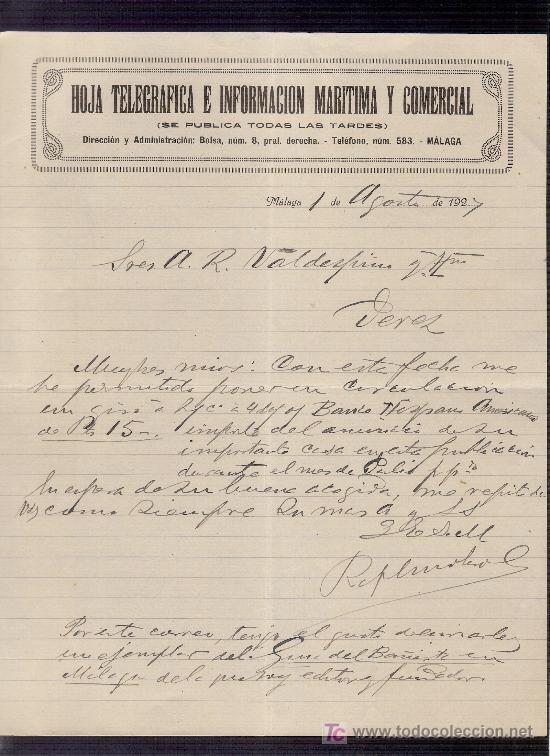 HOJA TELEGRAFICA E INFORMACION MARITIMA Y COMERCIAL
(SE PUBLICA TODAS LAS TARDES)
Dirección y Administración: Bolsa, núm. 8, pral. derecha. - Teléfono, núm. 583. - MÁLAGA
Málaga 1 de Agosto de 1927
Sres A. R. Valdespino y Hno
Jerez
Muy Sres mios: Con esta fecha me
he permitido poner en circulacion
un giro a Banco Hispano Americano
de Pts 15-. importe del anuncio de su
importante casa en esta publicación
durante el mes de Julio p. p.
En espera de su buena acogida, me repito de
Vds como siempre su mas a y SS
Por este correo, tengo el gusto de enviarles
un ejemplar de la Guia del Bañista en
Málaga de la que soy editor y fundador.
todocoleccion.net